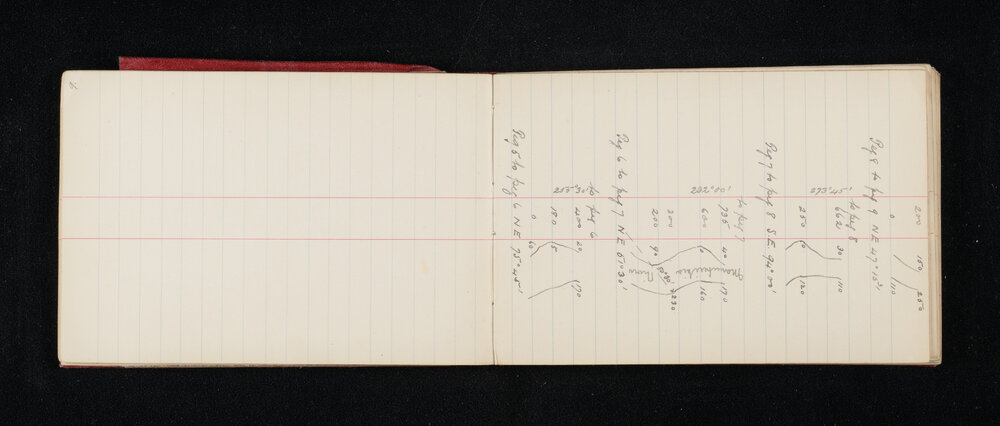 200 150 250
0 110
Peg 8 to peg 9 NE 47°15'
to peg 8
662 30 110
273°45'
250 10 120
Peg 7 to peg 8 SE 94°00'
to peg 7
735 40 170
Manuherikia
202°00'
600 10 160
200 230
200 90
River
Peg 6 to peg 7 NE 67°30'
to peg 6
400 20 170
253°30'
180 5
0 60
Peg 5 to peg 6 NE 75°45'